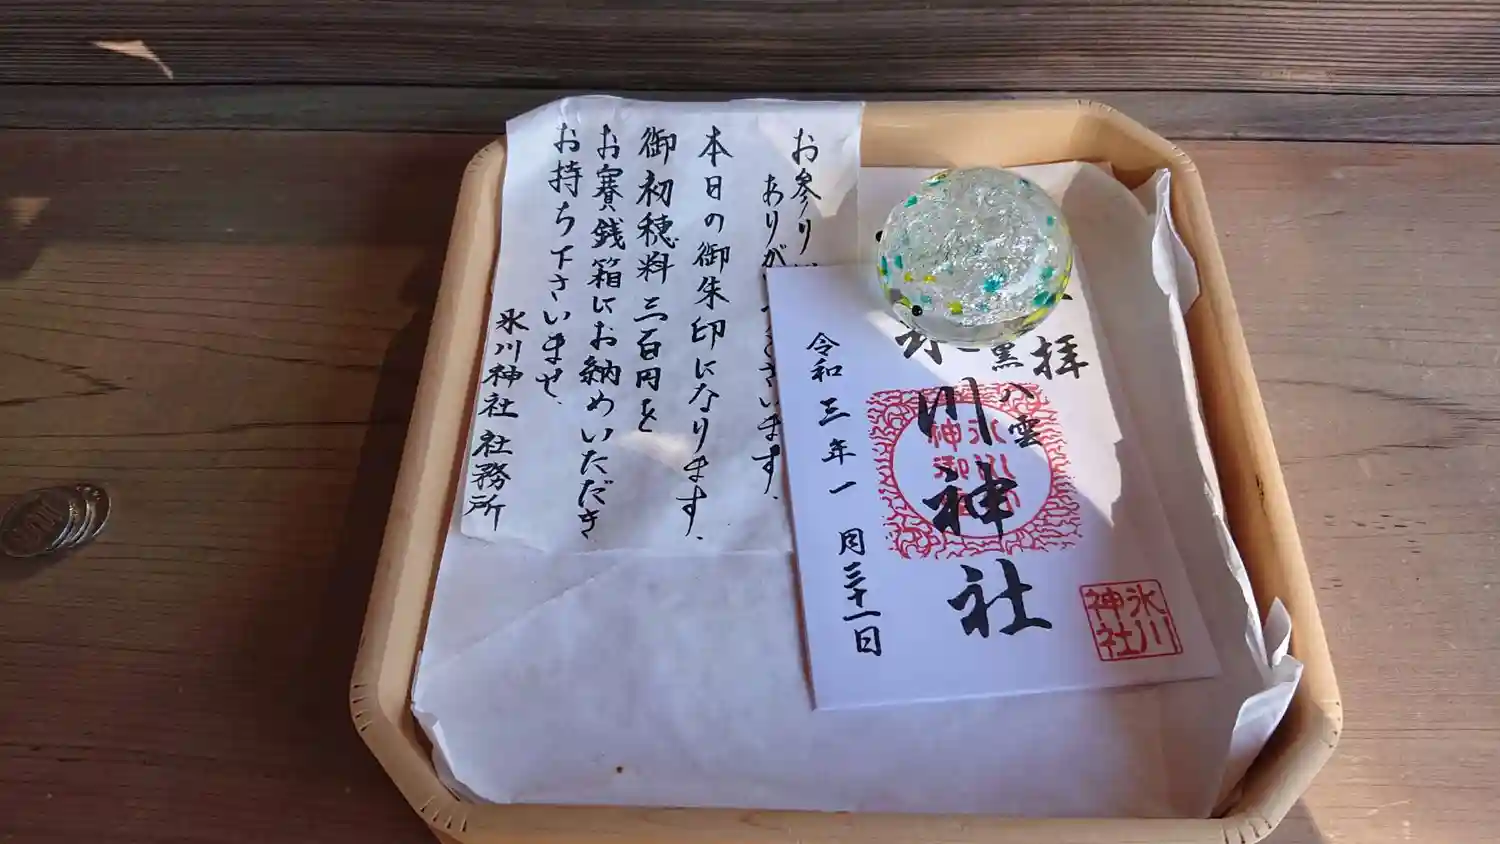 お参り
ありが ざいます。
本日の御朱印になります。
御初穂料三百円を
お賽銭箱にお納めいただき
お持ち下さいませ。
氷川神社 社務所
拝
黒
八雲
川神社
令和三年一月三十一日
氷川
神社
氷川
神社